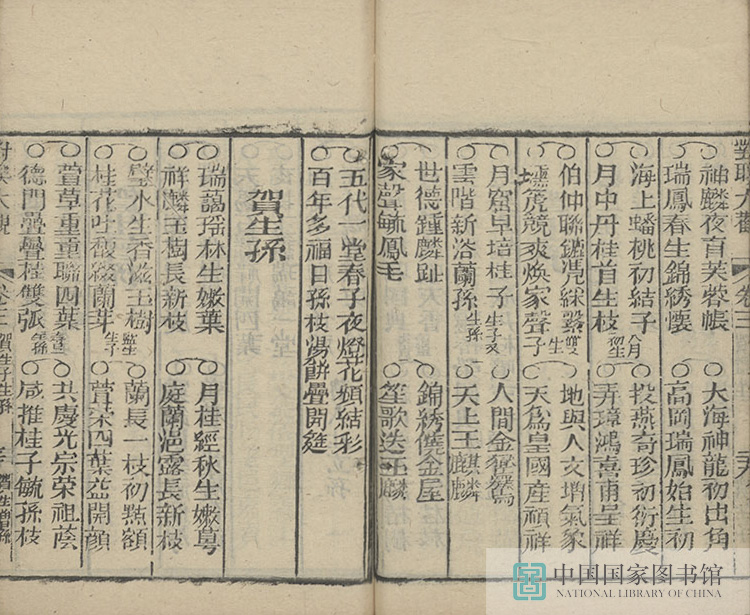 對聯大觀 卷三
神麟夜育芙蓉帳 大海神龍初出角
瑞鳳春生錦綉懷 高岡瑞鳳始生初
海上蟠桃初結子 八月 投燕奇珍初衍慶
月中丹桂首生枝 初生 弄璋鴻喜甫呈祥
伯仲聯鑣凴綵 雙生 地與人文增氣象
壎箎競爽煥家聲 子 天為皇國產禎祥
月窟早培桂子 子又 人間金鸑鷟
雲階新浴蘭孫 生孫 天上玉麒麟
世德鍾麟趾 錦綉僥金屋
家聲毓鳳毛 笙歌送玉麟
五代一堂春子夜燈花頻結彩
百年多福日孫枝湯餅疊開筵
賀生孫
瑞藹瑶林生嫩葉 月桂經秋生嫩萼
祥麟玉樹長新枝 庭蘭浥露長新枝
璧水生香滋玉樹 蘭長一枝初點額
桂花吐馥綴蘭芽 生子 萱榮四葉益開顔
萱草重重聯四葉 共慶光宗荣祖蔭
德門疊疊桂雙弧 咸推桂子毓孫枝
對聯大觀 卷三 賀生子生孫